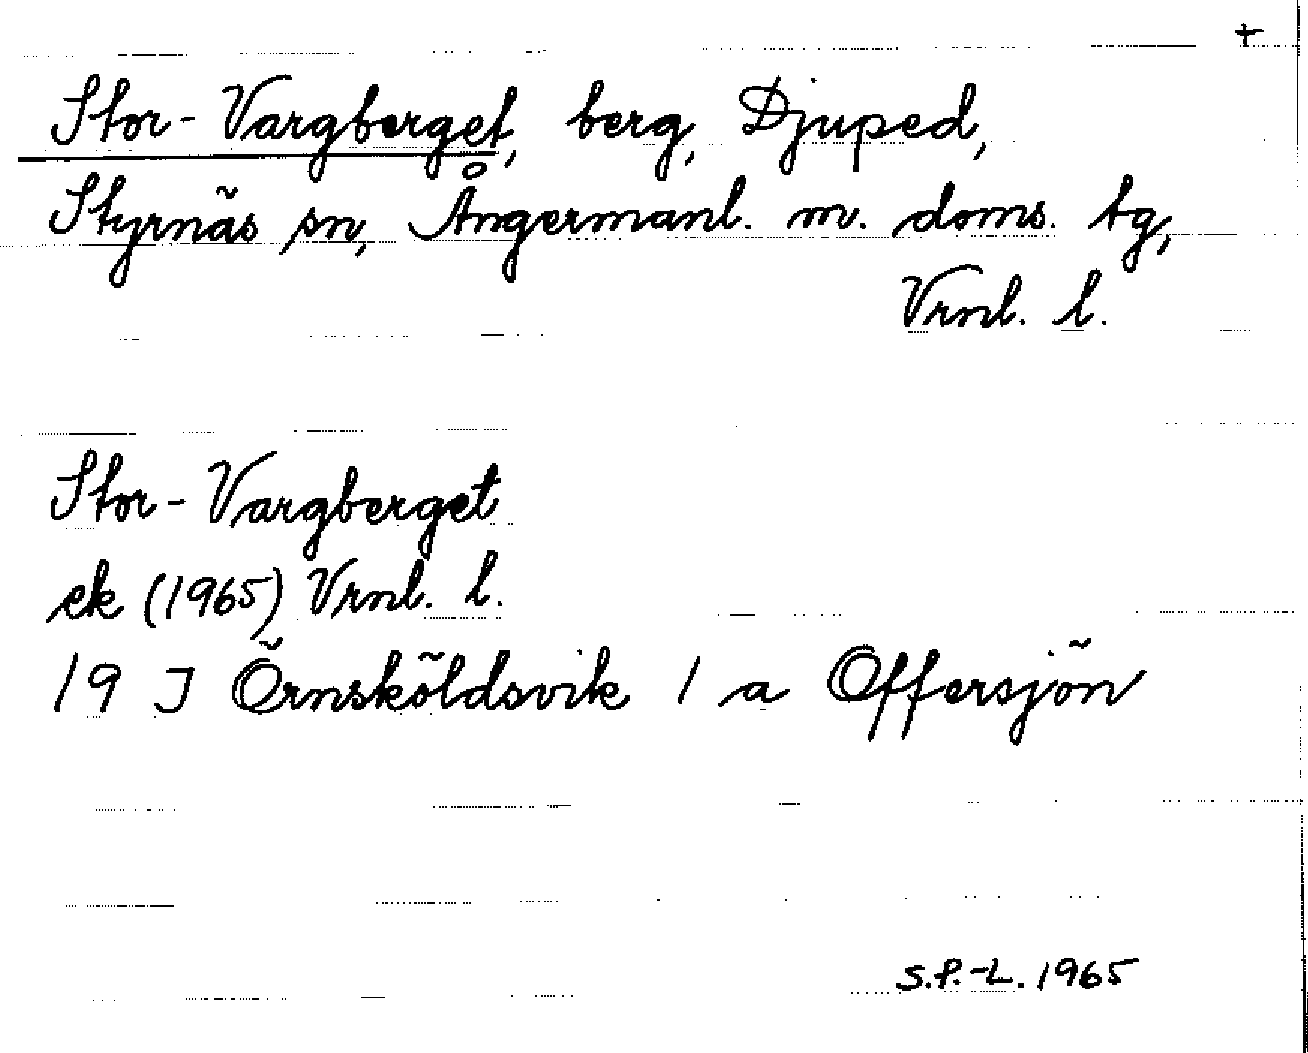 +
Stor-Vargberget, berg, Djuped,
Styrnäs sn, Ångermanl. m. doms. tg,
Vrnl. l.
Stor-Vargberget
ek (1965) Vrnl. l.
19 J Örnsköldsvik 1 a Offersjön
S.P.-L. 1965